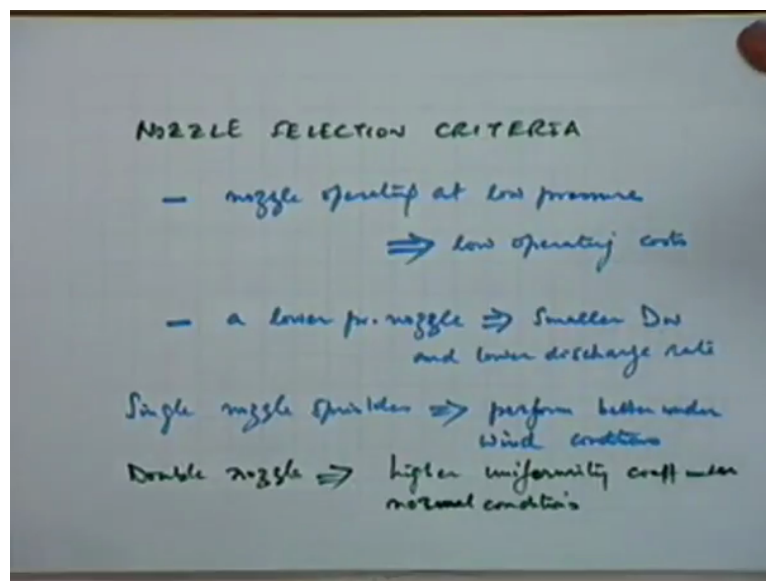 NOZZLE SELECTION CRITERIA
— nozzle operating at low pressure
⇒ low operating costs
— a lower pr. nozzle ⇒ Smaller Dw
and lower discharge rate
Single nozzle Sprinkler ⇒ perform better under
wind conditions
Double nozzle ⇒ higher uniformity coeff under
normal conditions